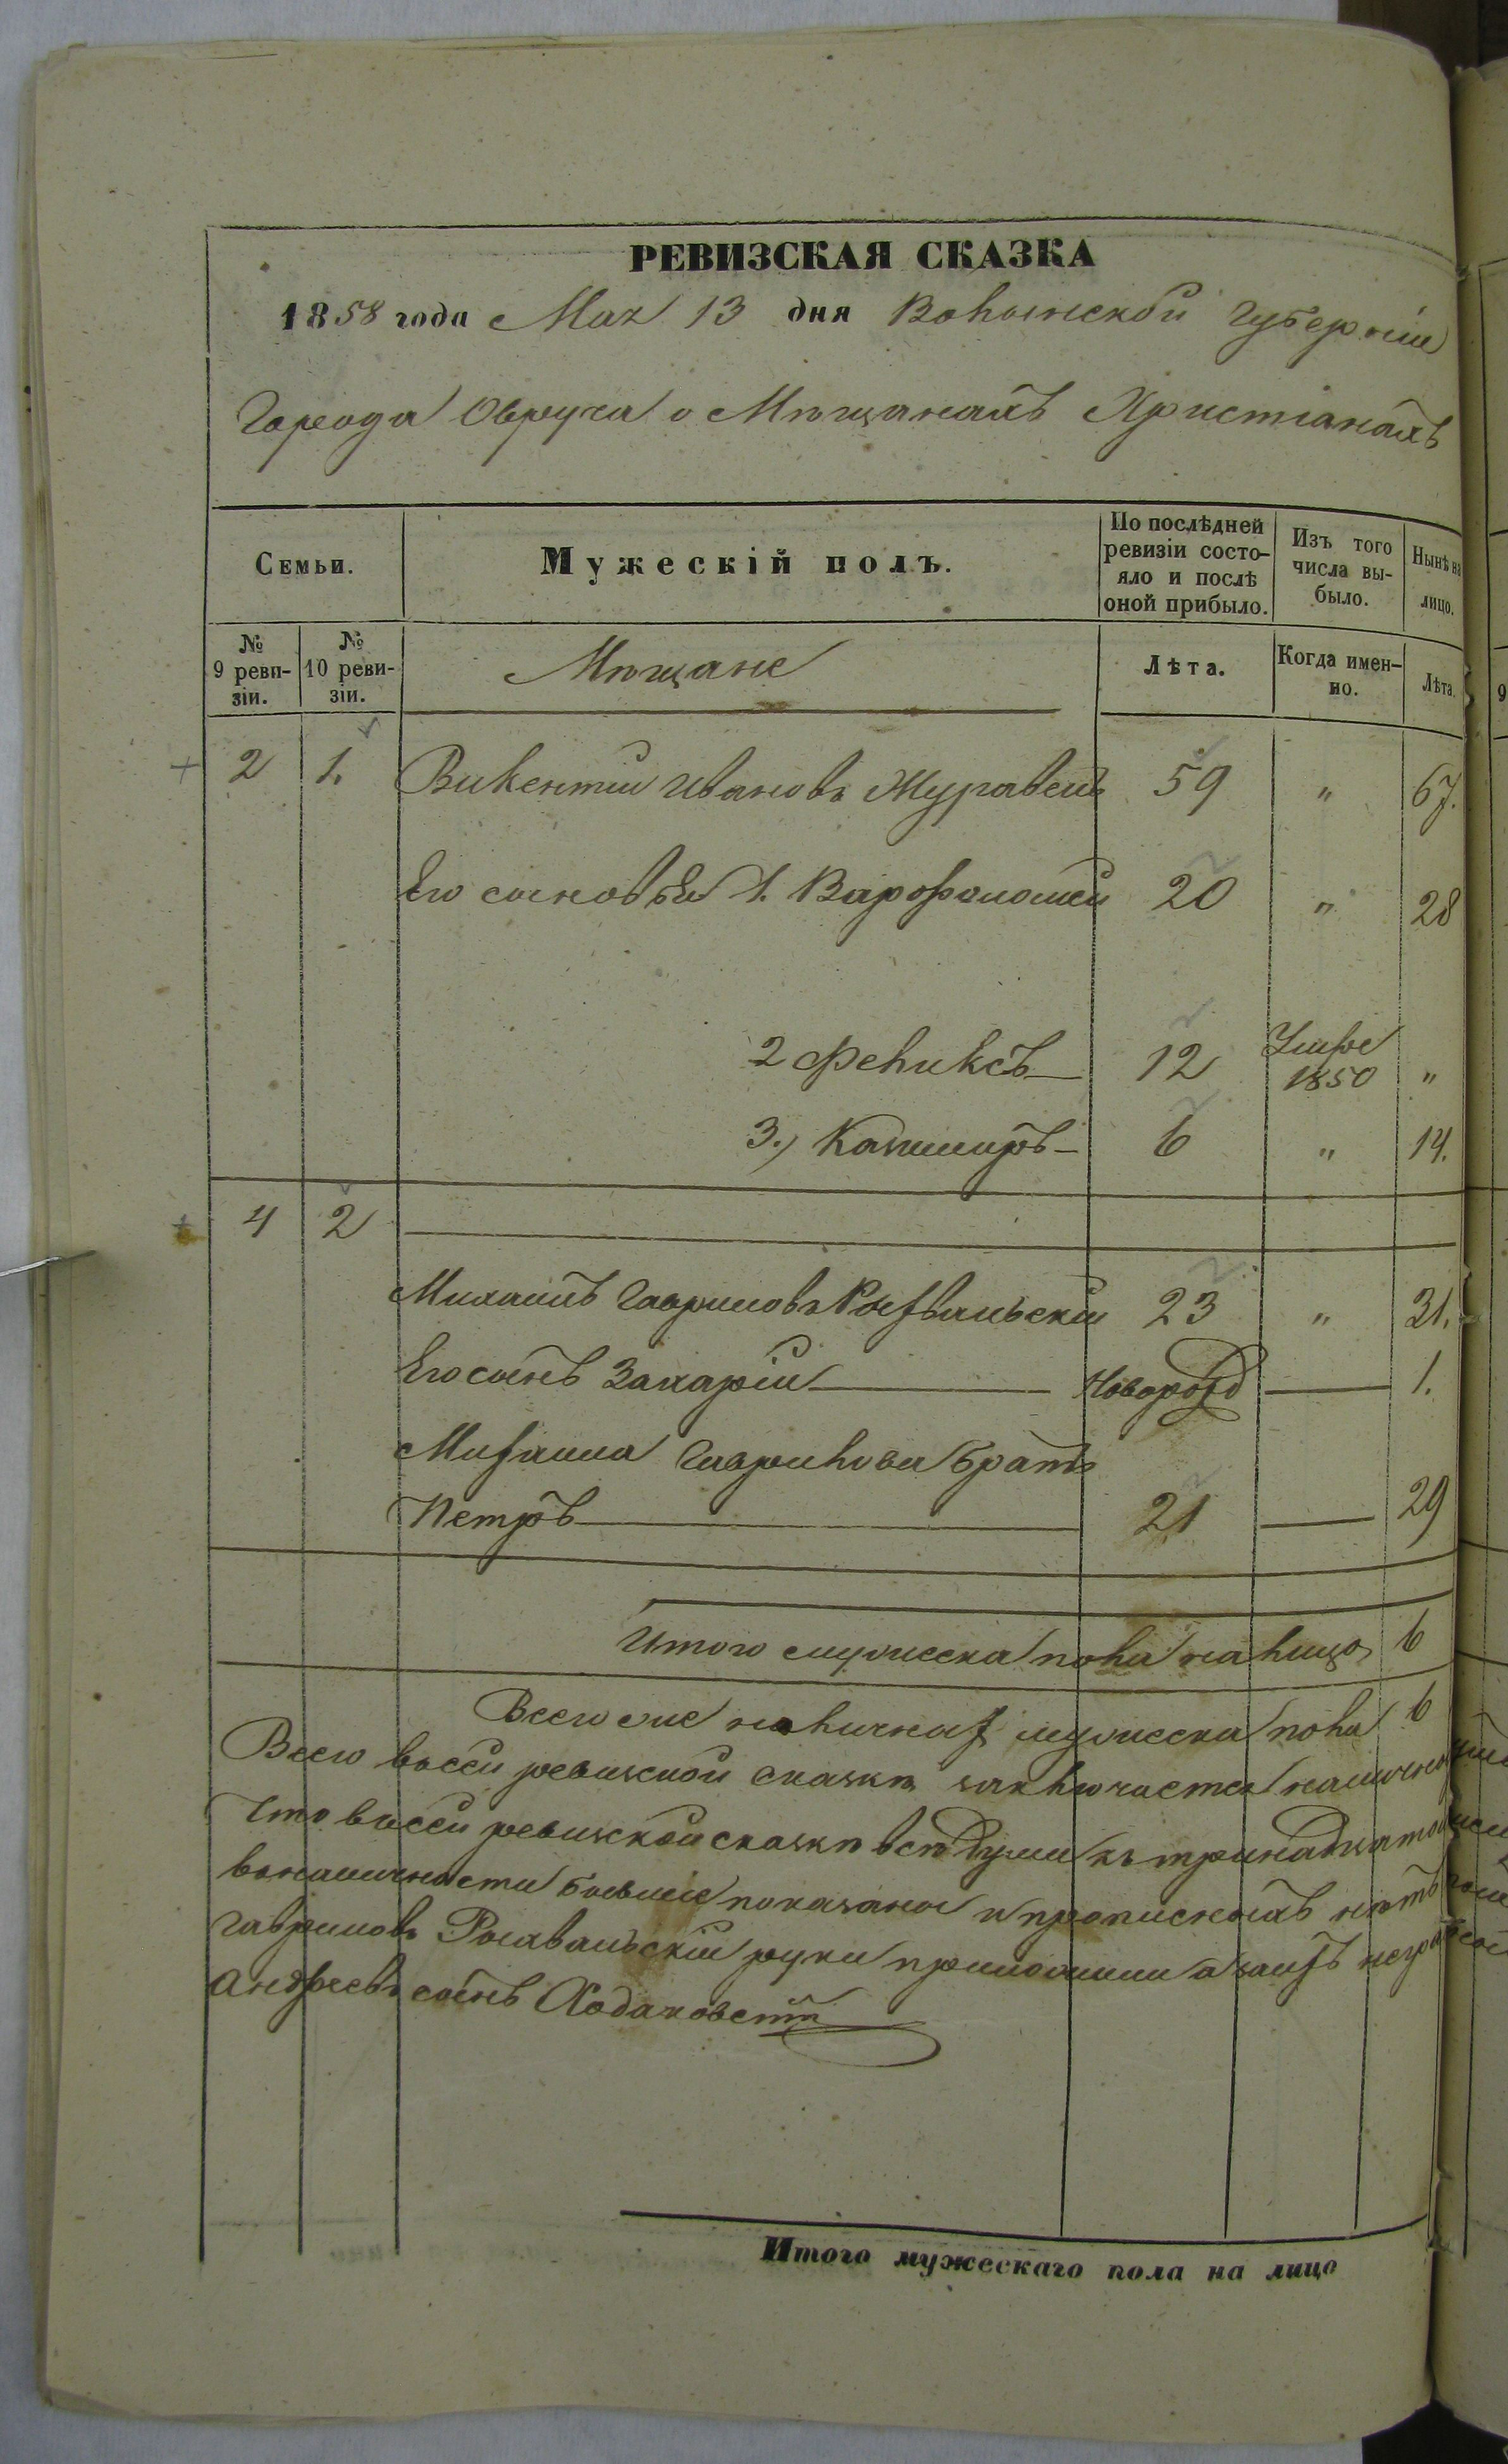 РЕВИЗСКАЯ СКАЗКА
1858 года Мая 13 дня Волынской Губерніи
Города Овруча о Мѣщанахъ Христіанахъ
Семьи.
Мужескій полъ.
По послѣдней ревизіи состо-
яло и послѣ оной прибыло.
Изъ того числа вы-
было.
Нынѣ на лицо.
№ 9 реви-
зіи.
№ 10 реви-
зіи.
Мѣщане
Лѣта.
Когда имен-
но.
Лѣта.
2 1. Викентій Ивановъ Журавель 59 " 67.
Его сыновья 1. Варфоломей 20 " 28
2 Феликсъ 12 Умре 1850 "
3.) Казимиръ 6 " 14.
4 2
Михаилъ Гавриловъ 23 " 31.
Его сынъ Захарій Новорожд 1.
Михаила Гаврилова братъ
Петръ 21 29
Итого мужеска пола на лицо 6
Всего мужеска пола 6
Всего въ сей ревизской сказкѣ заключается
Что въ сей ревизской сказкѣ всѣ души къ тринадцатому
въ наличности бывшие показаны и прописныхъ нѣтъ
Гавриловъ руки приложили а за
Андреевъ сынъ Ходаковскій
Итого мужескаго пола на лицо